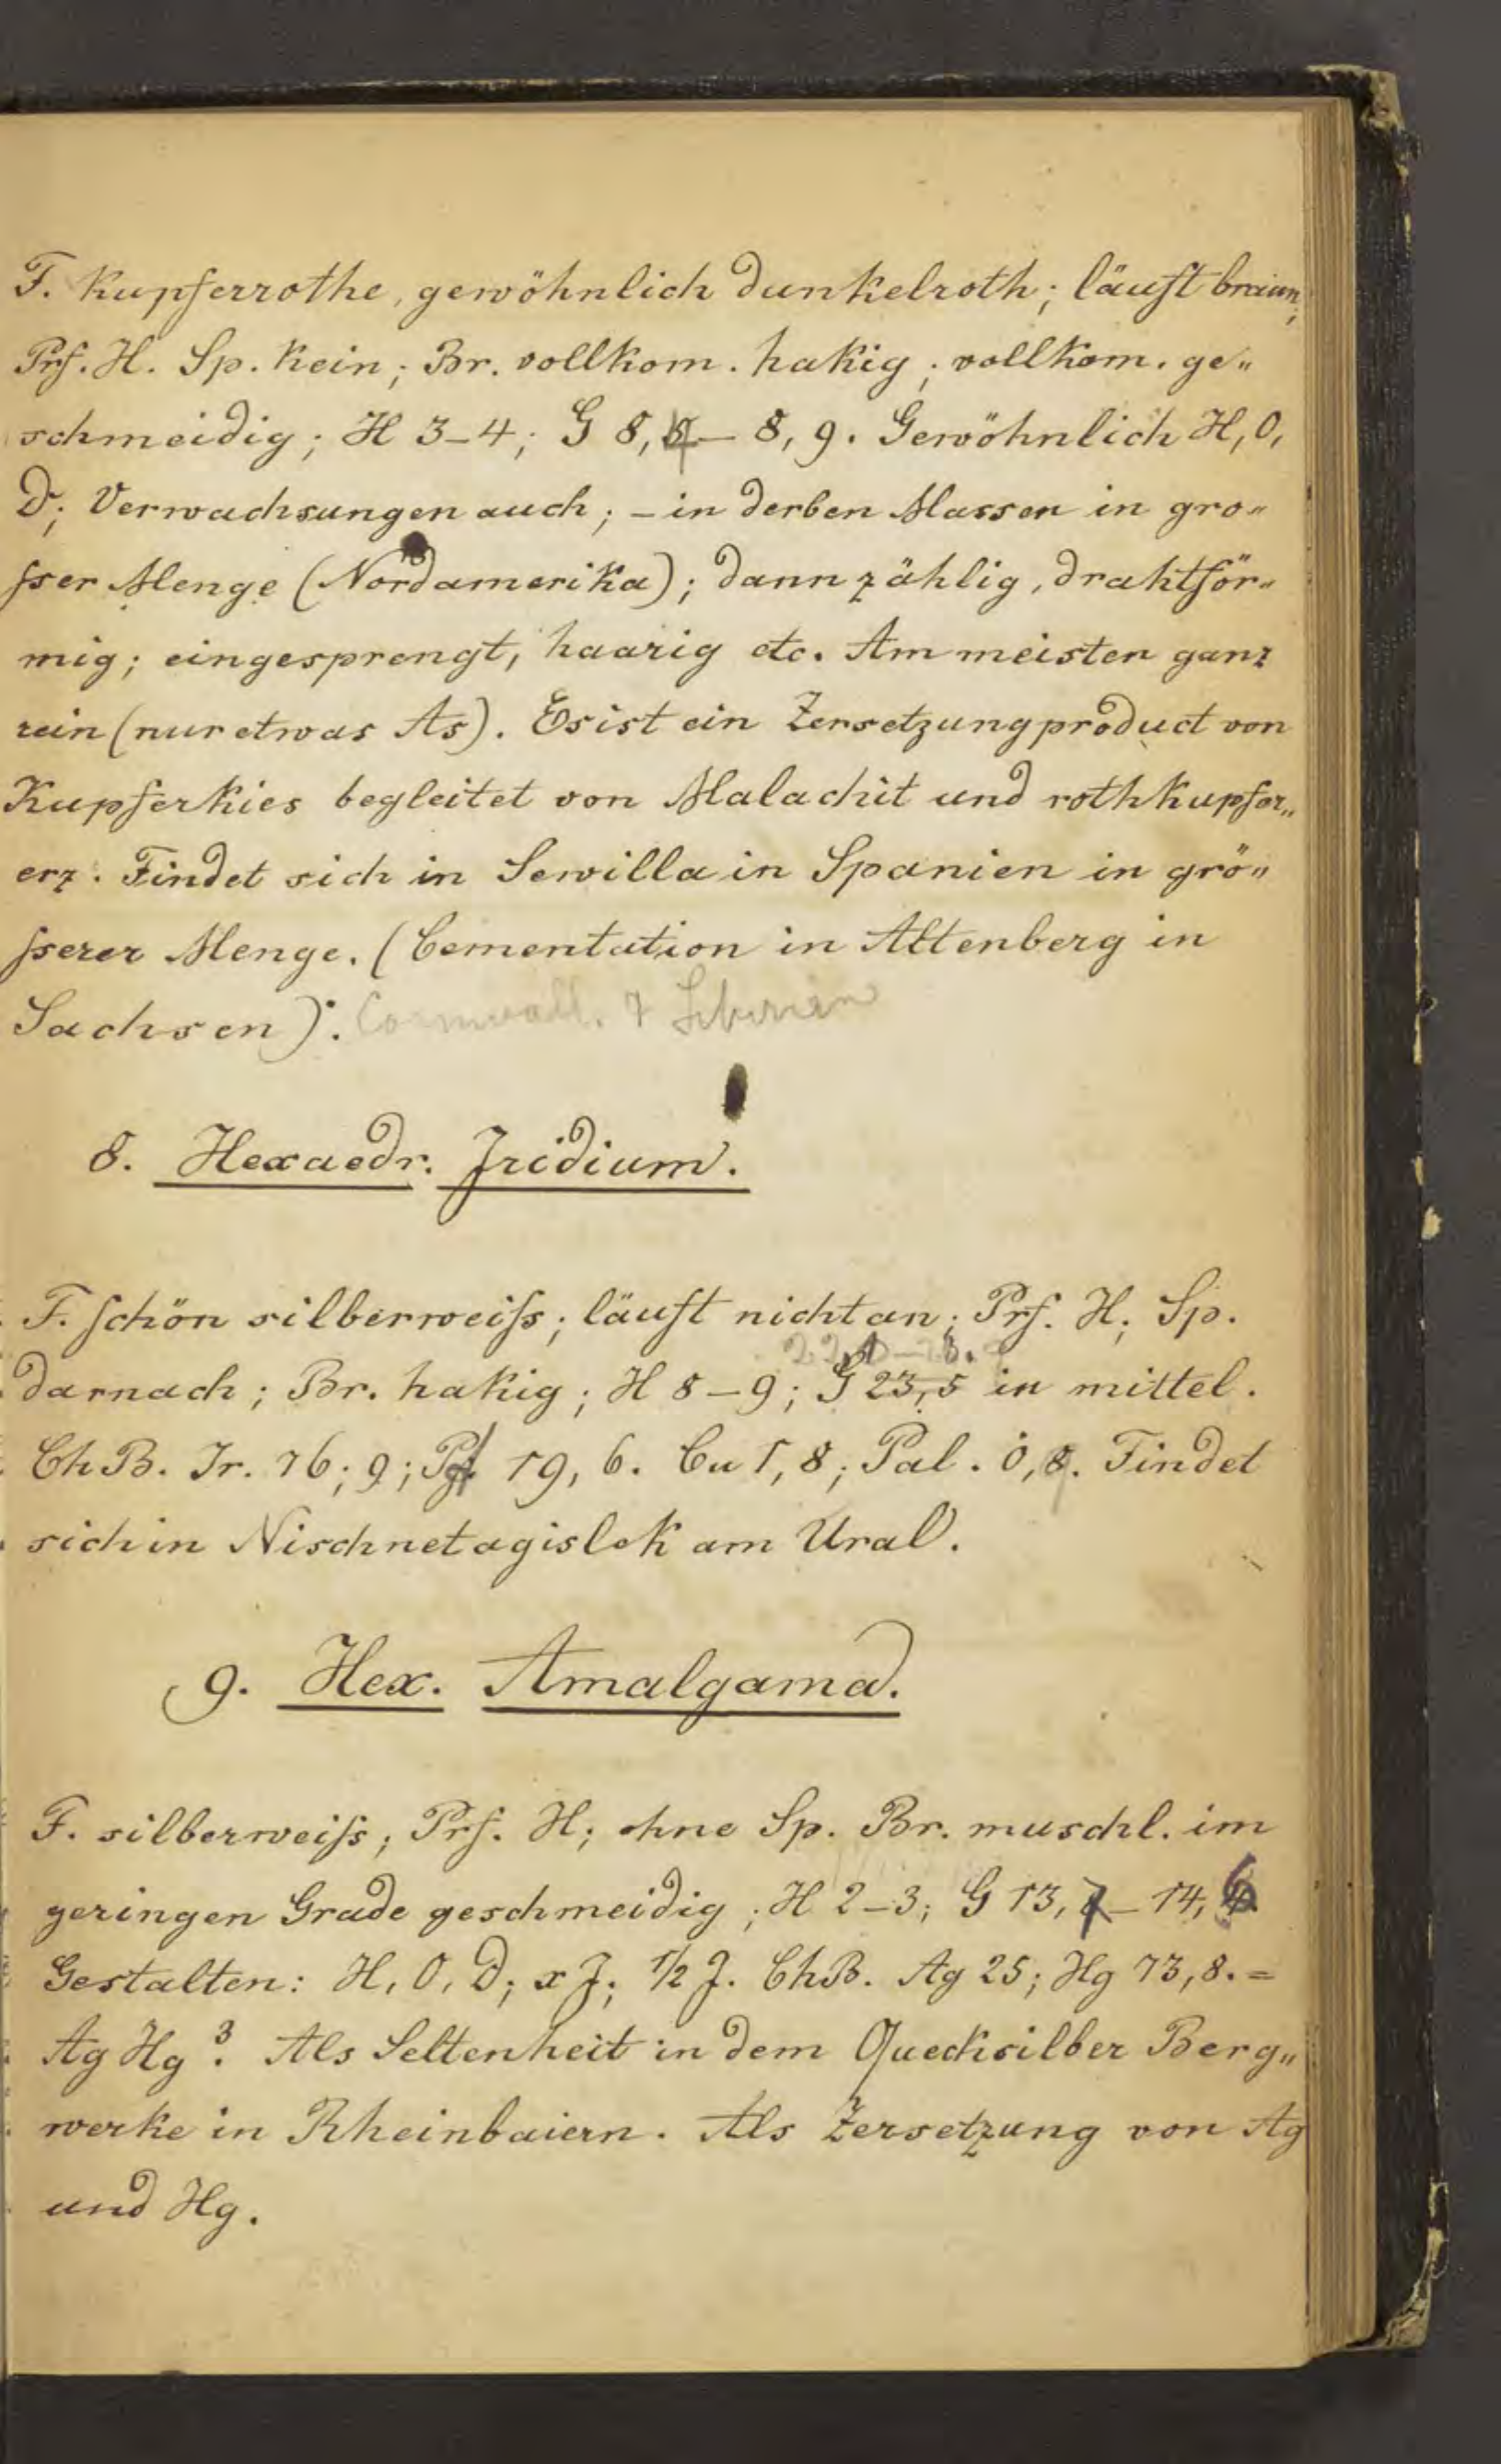 F. kupferrothe, gewöhnlich dunkelroth; läuft braun;
Prf. H. Sp. kein; Br. vollkom. hakig; vollkom. ge„
schmeidig; H 3-4; G 8,4 – 8,9. Gewöhnlich H, O,
D; Verwachsungen auch; – in derben Massen in gro„
sser Menge (Nordamerika); dann zählig, drahtför„
mig; eingesprengt, haarig etc. Am meisten ganz
rein (nur etwas As). Es ist ein Zersetzungproduct von
Kupferkies begleitet von Malachit und rothkupfer„
erz. Findet sich in Sewilla in Spanien in grö„
sserer Menge. (Cementation in Altenberg in
Sachsen). Cornwall. & Sibirien
8. Hexaedr. Iridium.
F. schön silberweiss; läuft nicht an; Prf. H; Sp.
darnach; Br. hakig; H 8–9; G 23,5 in mittel.
ChB. Ir. 76,9; Pt 19,6. Cu 1,8; Pal. 0,8. Findet
sich in Nischnetagislek am Ural.
9. Hex. Amalgama.
F. silberweiss; Prf. H; ohne Sp. Br. muschl. im
geringen Grade geschmeidig; H 2–3; G 13,7–14,6
Gestalten: H, O, D; x J; 1/2 J. ChB. Ag 25; Hg 73,8. =
Ag Hg³. Als Seltenheit in dem Quecksilber Berg„
werke in Rheinbaiern. Als Zersetzung von Ag
und Hg.